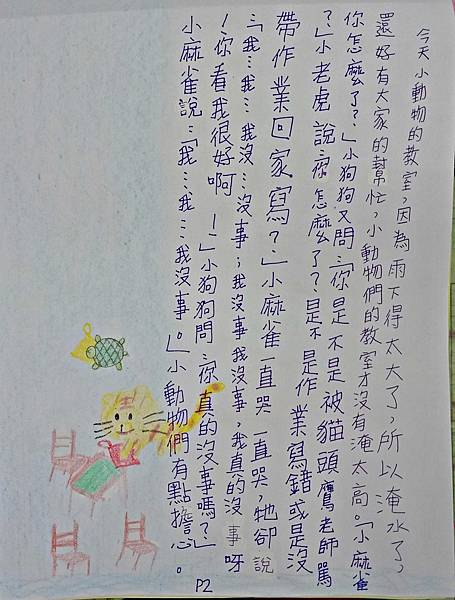 今天小動物的教室,因為雨下得太大了,所以淹水了,
還好有大家的幫忙,小動物們的教室才沒有淹太高。「小麻雀
你怎麼了?」小狗狗又問:「你是不是被貓頭鷹老師罵
?」小老虎說:「你怎麼了?是不是作業寫錯或是沒
帶作業回家寫?」小麻雀一直哭一直哭,牠卻說
:「我…我…我沒…沒事;我沒事我沒事,我真的沒事呀
!你看我很好啊!」小狗狗問:「你真的沒事嗎?」
小麻雀說:「我…我…我沒事。」小動物們有點擔心。
P2